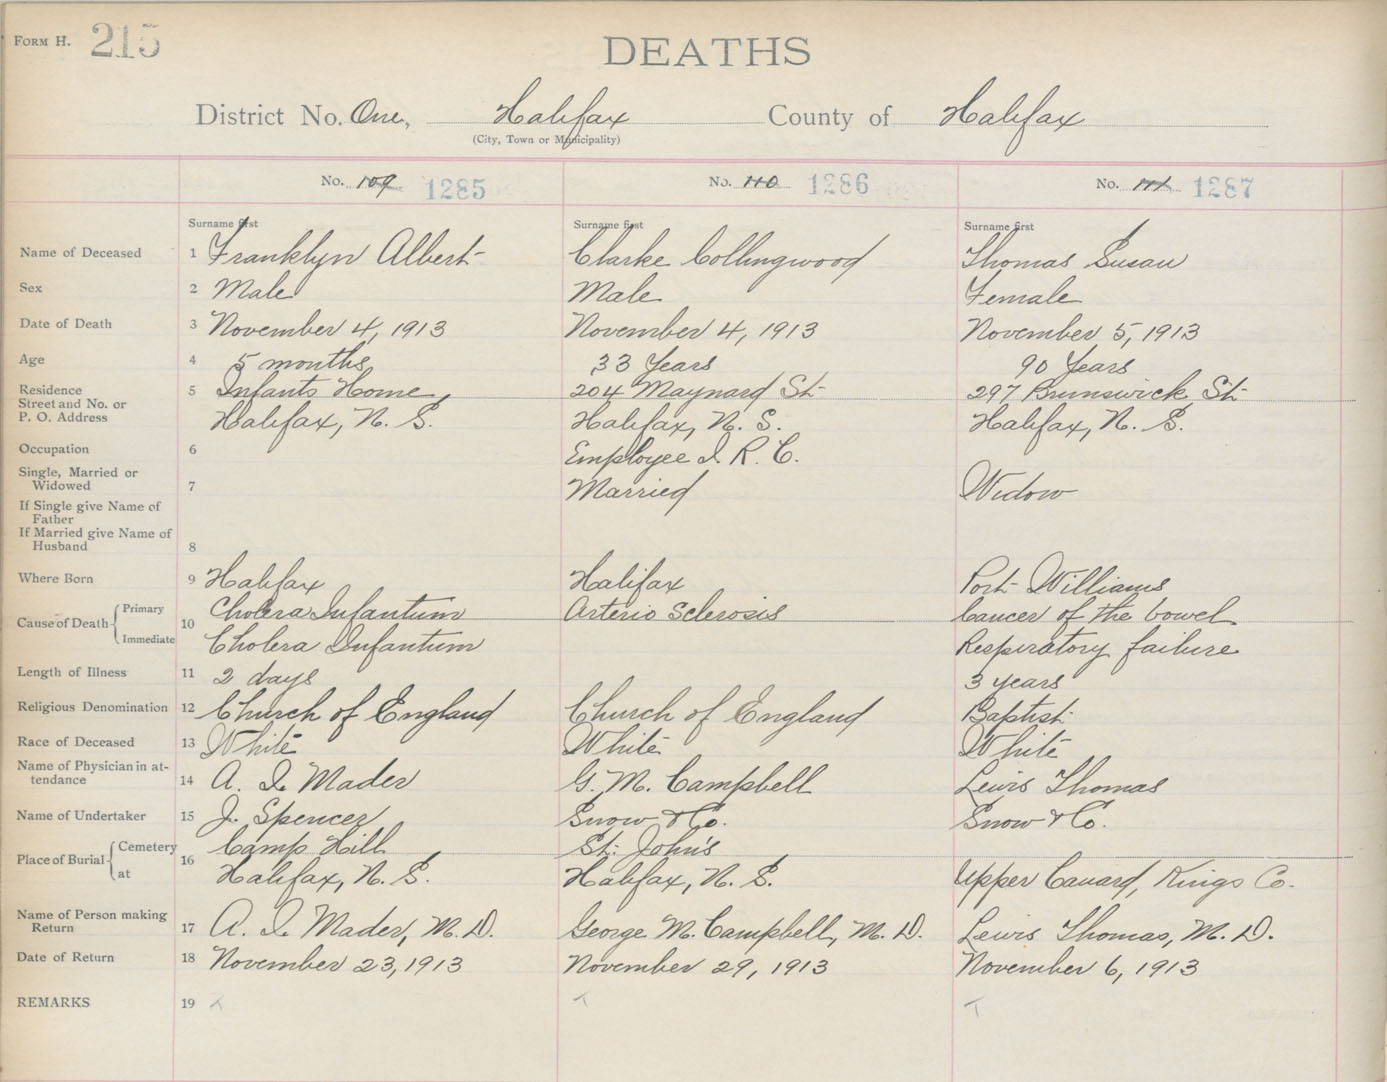 FORM H. 215
DEATHS
District No. One, Halifax County of Halifax
(City, Town or Municipality)
No. 109 1285 No. 110 1286 No. 111 1287
Surname first Surname first Surname first
Name of Deceased 1 Franklyn Albert Clarke Collingwood Thomas Susan
Sex 2 Male Male Female
Date of Death 3 November 4, 1913 November 4, 1913 November 5, 1913
Age 4 5 months 33 Years 90 Years
Residence 5 Infants Home, 204 Maynard St 297 Brunswick St
Street and No. or
P. O. Address Halifax, N. S. Halifax, N. S. Halifax, N. S.
Occupation 6 Employee I. R. C.
Single, Married or
Widowed 7 Married Widow
If Single give Name of
Father
If Married give Name of
Husband 8
Where Born 9 Halifax Halifax Port Williams
Cause of Death Primary 10 Cholera Infantum Arterio Sclerosis Cancer of the bowel
Immediate Cholera Infantum Respiratory failure
Length of Illness 11 2 days 3 years
Religious Denomination 12 Church of England Church of England Baptist
Race of Deceased 13 White White White
Name of Physician in at-
tendance 14 A. I. Mader G. M. Campbell Lewis Thomas
Name of Undertaker 15 J. Spencer Snow & Co. Snow & Co.
Place of Burial Cemetery 16 Camp Hill St. John's
at Halifax, N. S. Halifax, N. S. Upper Canard, Kings Co.
Name of Person making
Return 17 A. I. Mader, M. D. George M. Campbell, M. D. Lewis Thomas, M. D.
Date of Return 18 November 23, 1913 November 29, 1913 November 6, 1913
REMARKS 19